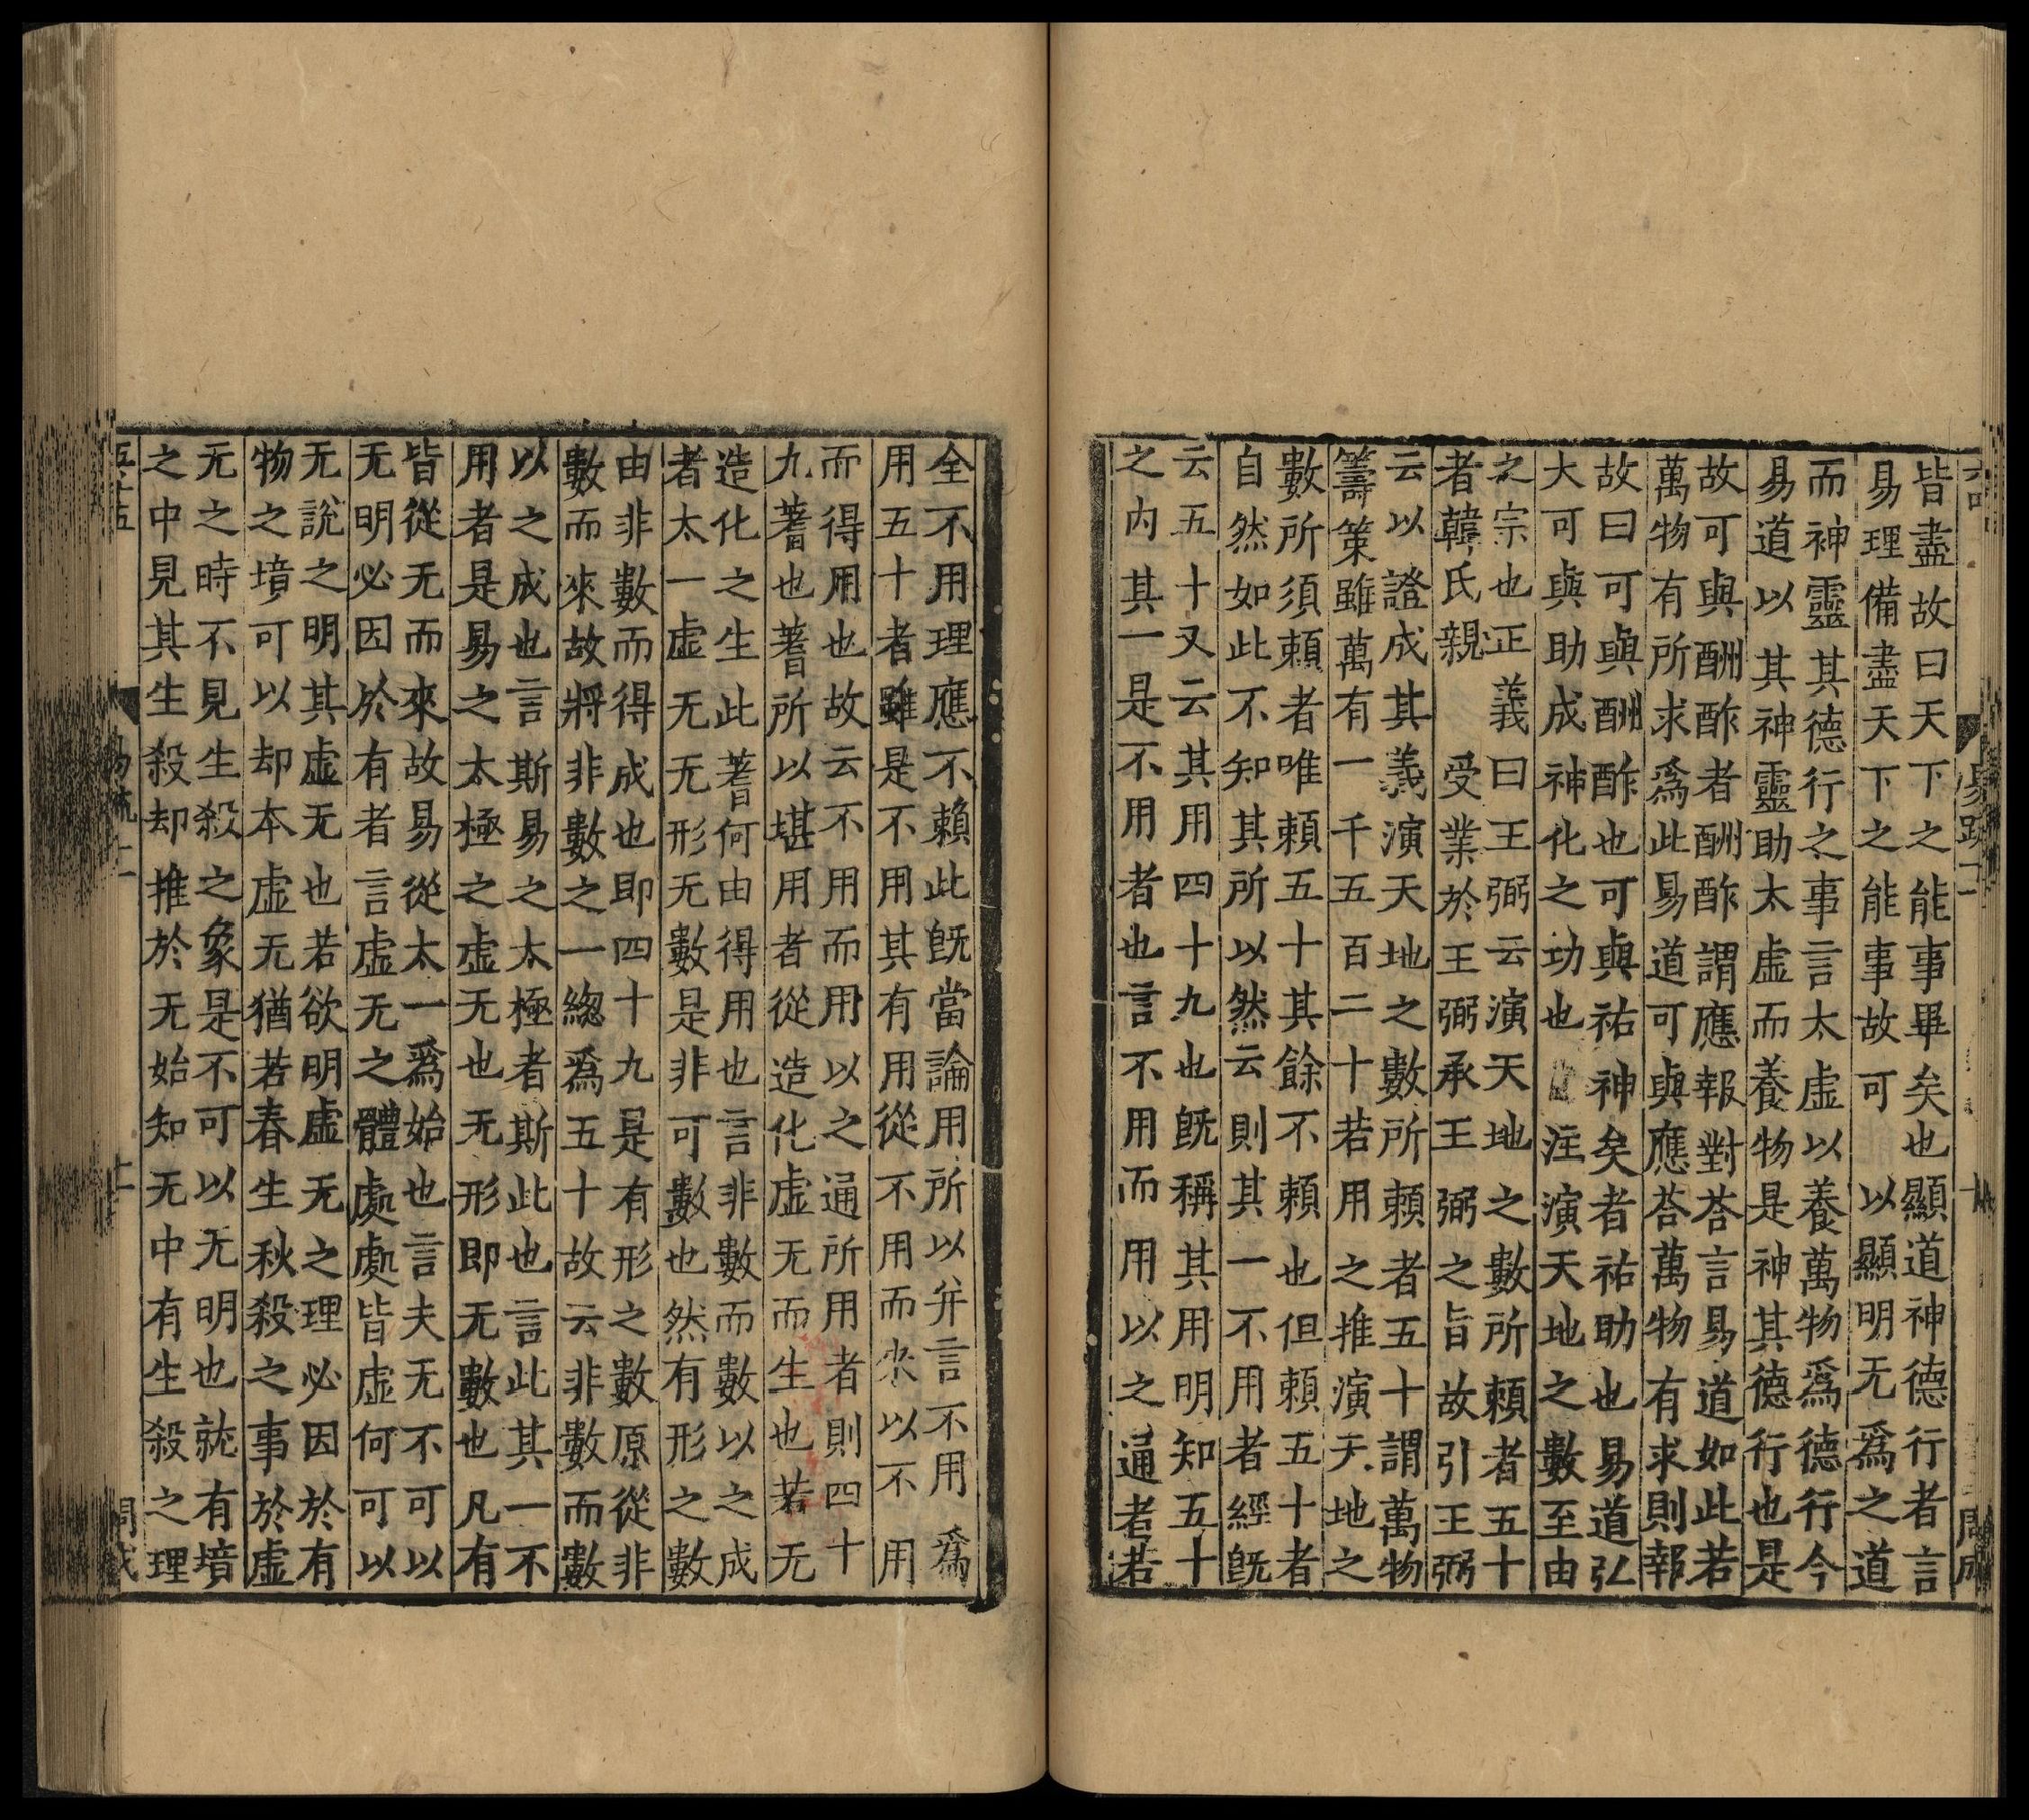 皆盡故曰天下之能事畢矣也顯道神德行者言
易理備盡天下之能事故可以顯明无爲之道
而神靈其德行之事言太虚以養萬物爲德行今
易道以其神靈助太虚而養物是神其德行也是
故可與酬酢者酬酢謂應報對荅言易道如此若
萬物有所求爲此易道可與應荅萬物有求則報
故曰可與酬酢也可與祐神矣者祐助也易道弘
大可與助成神化之功也 注演天地之數至由
之宗也正義曰王弼云演天地之數所頼者五十
者韓氏親受業於王弼承王弼之旨故引王弼
云以證成其義演天地之數所頼者五十謂萬物
籌策雖萬有一千五百二十若用之推演天地之
數所須頼者唯頼五十其餘不頼也但頼五十者
自然如此不知其所以然云則其一不用者經旣
云五十又云其用四十九也旣稱其用明知五十
之内其一是不用者也言不用而用以之通者若
全不用理應不賴此旣當論用所以并言不用爲
用五十者雖是不用其有用從不用而來以不用
而得用也故云不用而用以之通所用者則四十
九蓍也蓍所以堪用者從造化虚无而生也若无
造化之生此蓍何由得用也言非數而數以之成
者太一虚无无形无數是非可數也然有形之數
由非數而得成也即四十九是有形之數原從非
數而來故將非數之一緫爲五十故云非數而數
以之成也言斯易之太極者斯此也言此其一不
用者是易之太極之虚无也无形即无數也凡有
皆從无而來故易從太一爲始也言夫无不可以
无明必因於有者言虚无之體處處皆虚何可以
无說之明其虚无也若欲明虚无之理必因於有
物之墳可以却本虚无猶若春生秋殺之事於虚
无之時不見生殺之象是不可以无明也就有墳
之中見其生殺却推於无始知无中有生殺之理